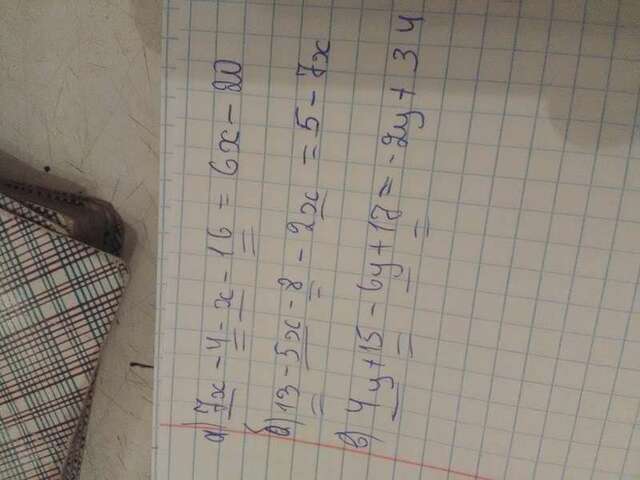 а) 7x - 4 - x - 16 = 6x - 20
б) 13 - 5x - 8 - 2x = 5 - 7x
в) 4y + 15 - 6y + 17 = -2y + 34